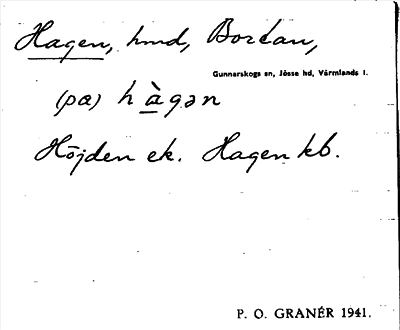 Hagen, hmd, Bortan,
Gunnarskogs sn, Jösse hd, Värmlands l.
(pα) h à̲gən
Höjden ek. Hagen kb.
P. O. GRANÉR 1941.